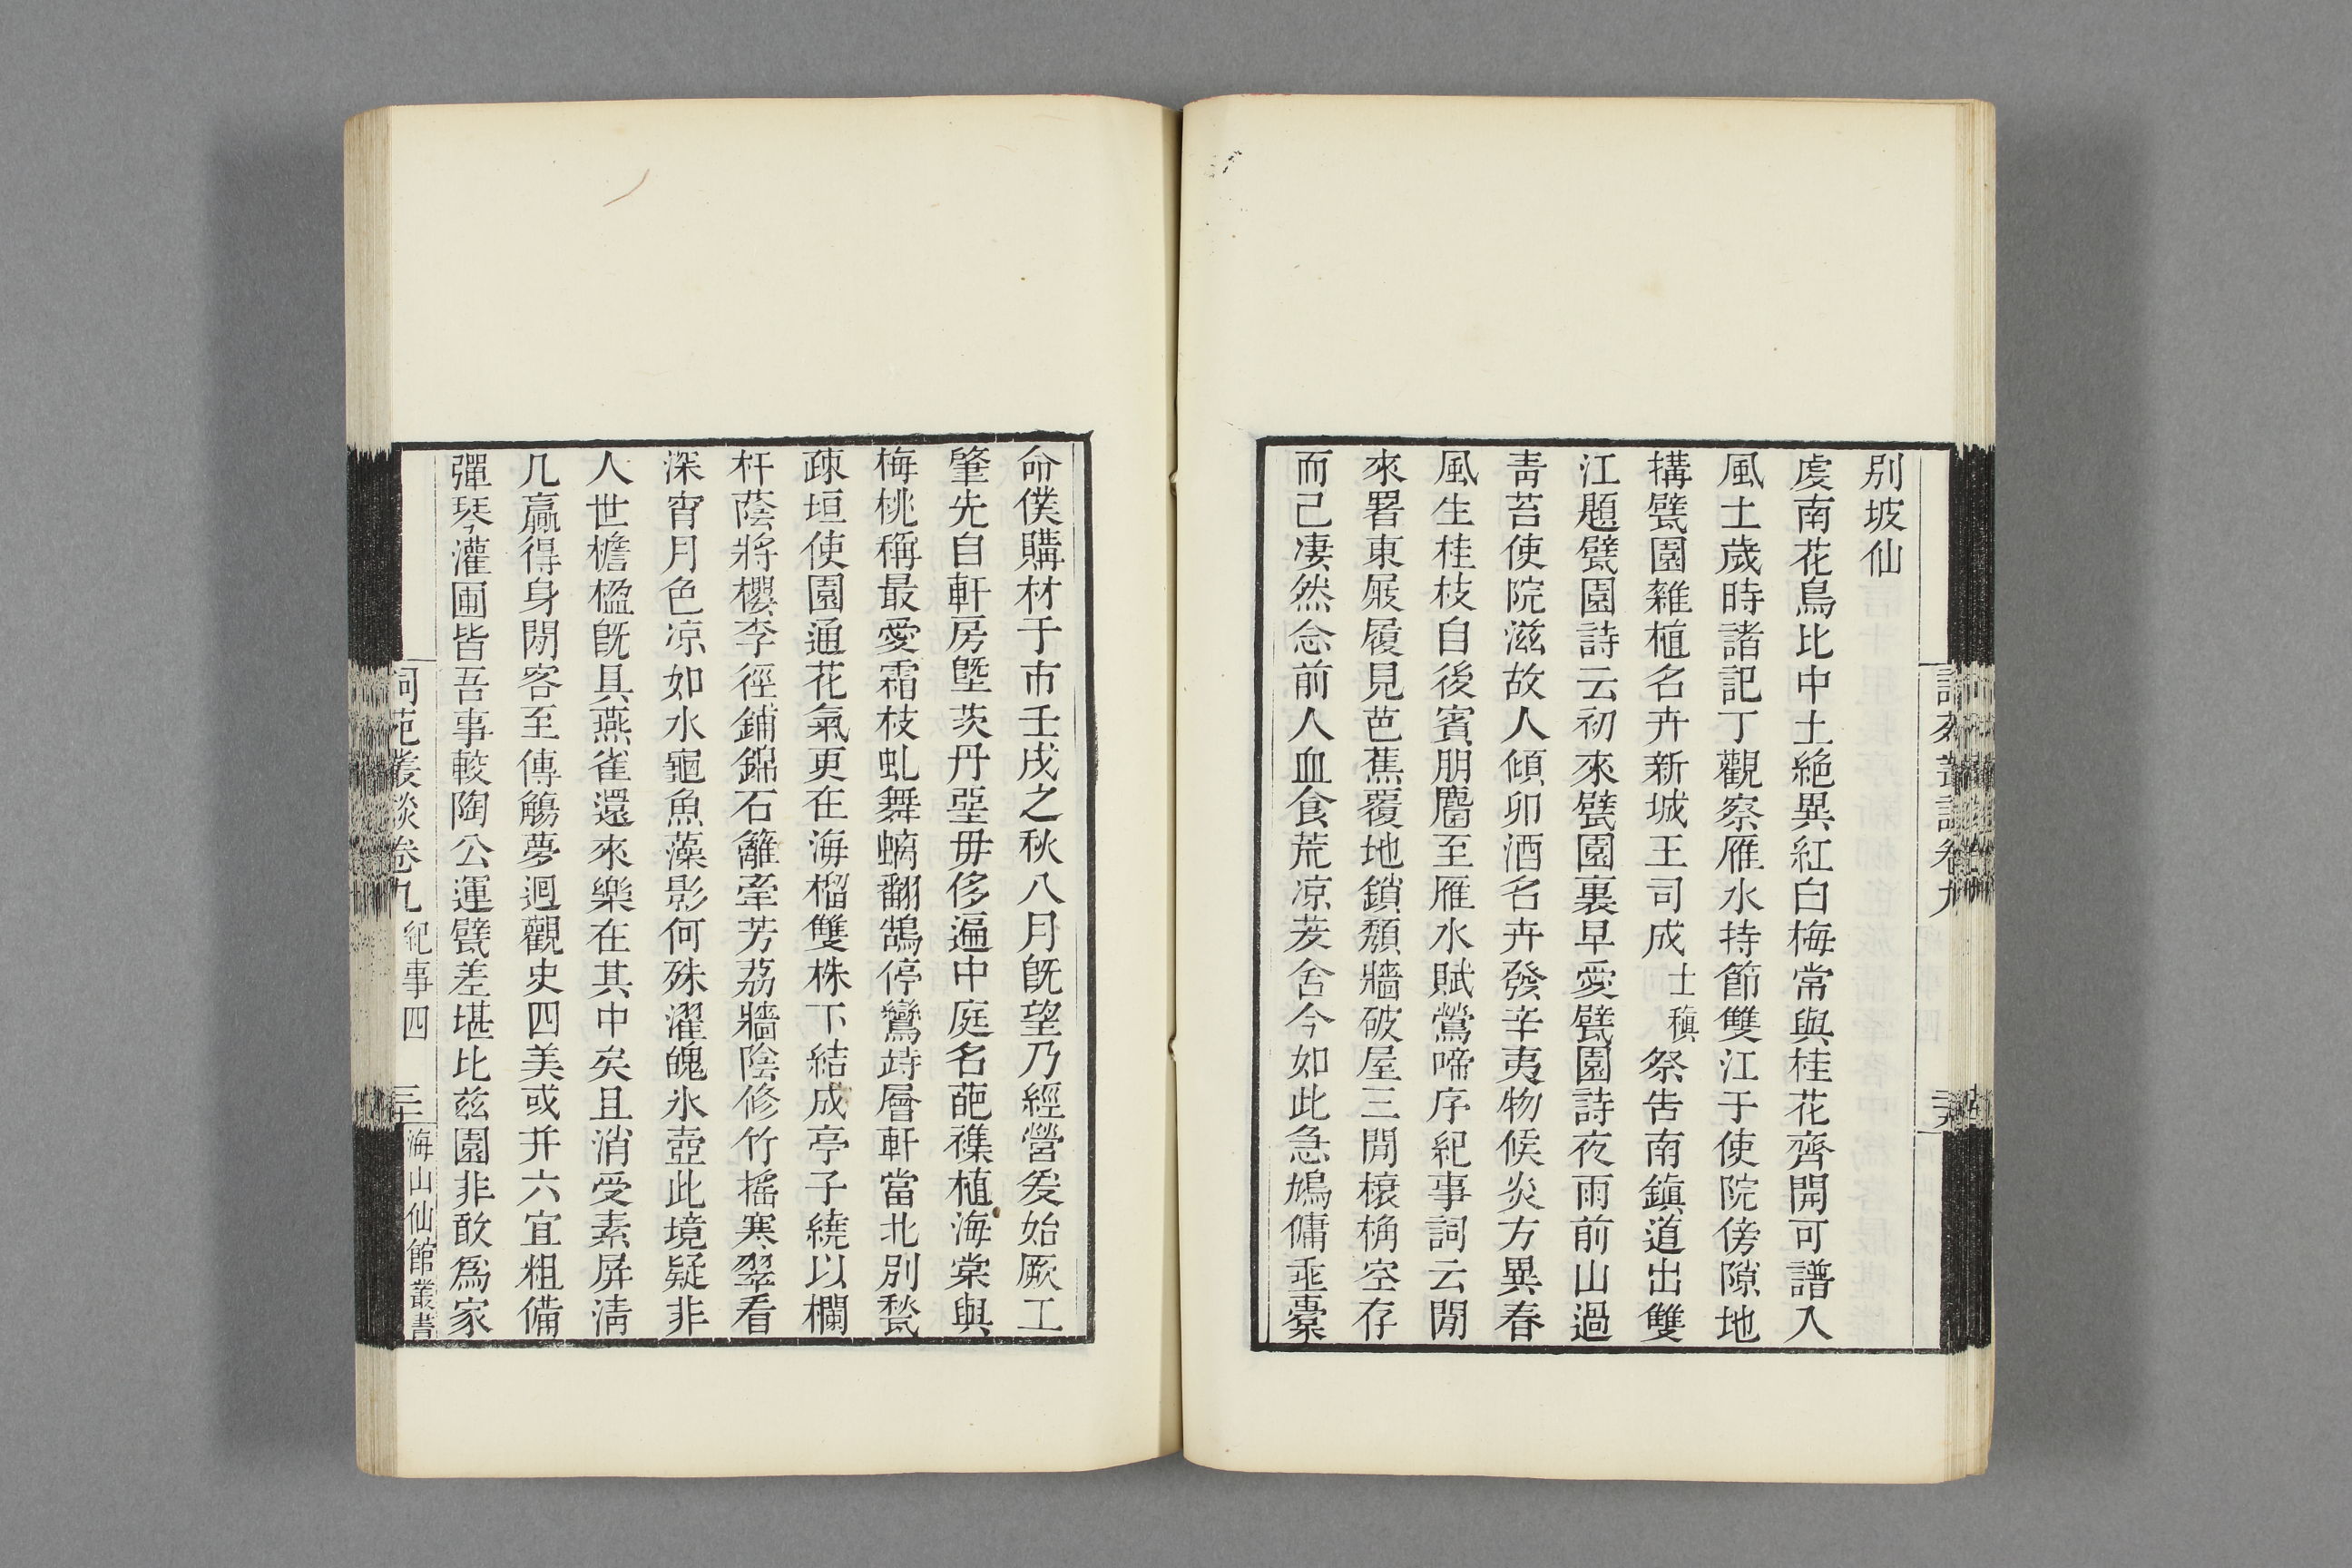 別坡仙
虔南花鳥比中土絶異紅白梅常與桂花齊開可譜入
風土歲時諸記丁觀察雁水持節雙江于使院傍隙地
搆甓園雜植名卉新城王司成士稹祭告南鎭道出雙
江題甓園詩云初來甓園裏早愛甓園詩夜雨前山過
青苔使院滋故人傾卯酒名卉發辛夷物候炎方異春
風生桂枝自後賓朋麕至雁水賦鶯啼序紀事詞云閒
來署東屐履見芭蕉覆地鎖頹牆破屋三間榱桷空存
而己凄然念前人血食荒凉茇舍今如此急鳩傭畚橐
詞苑叢談卷九
命僕購材于市壬戌之秋八月旣望乃經營爰始厥工
肇先自軒房曁茨丹堊毋侈遍中庭名葩襍植海棠與
梅桃稱最愛霜枝虬舞螭翻鵠停鸞跱層軒當北別甃
疎垣使園通花氣更在海榴雙株下結成亭子繞以欄
杆蔭將櫻李徑鋪錦石籬牽芳荔牆陰修竹搖寒翠看
深宵月色凉如水龜魚藻影何殊濯魄氷壺此境疑非
人世檐楹旣具燕雀還來樂在其中矣且消受素屏淸
几贏得身閒客至傳觴夢迴觀史四美或并六宜粗備
彈琴灌圃皆吾事較陶公運甓差堪比玆園非敢爲家
詞苑叢談卷九 紀事四 三十 海山仙館叢書